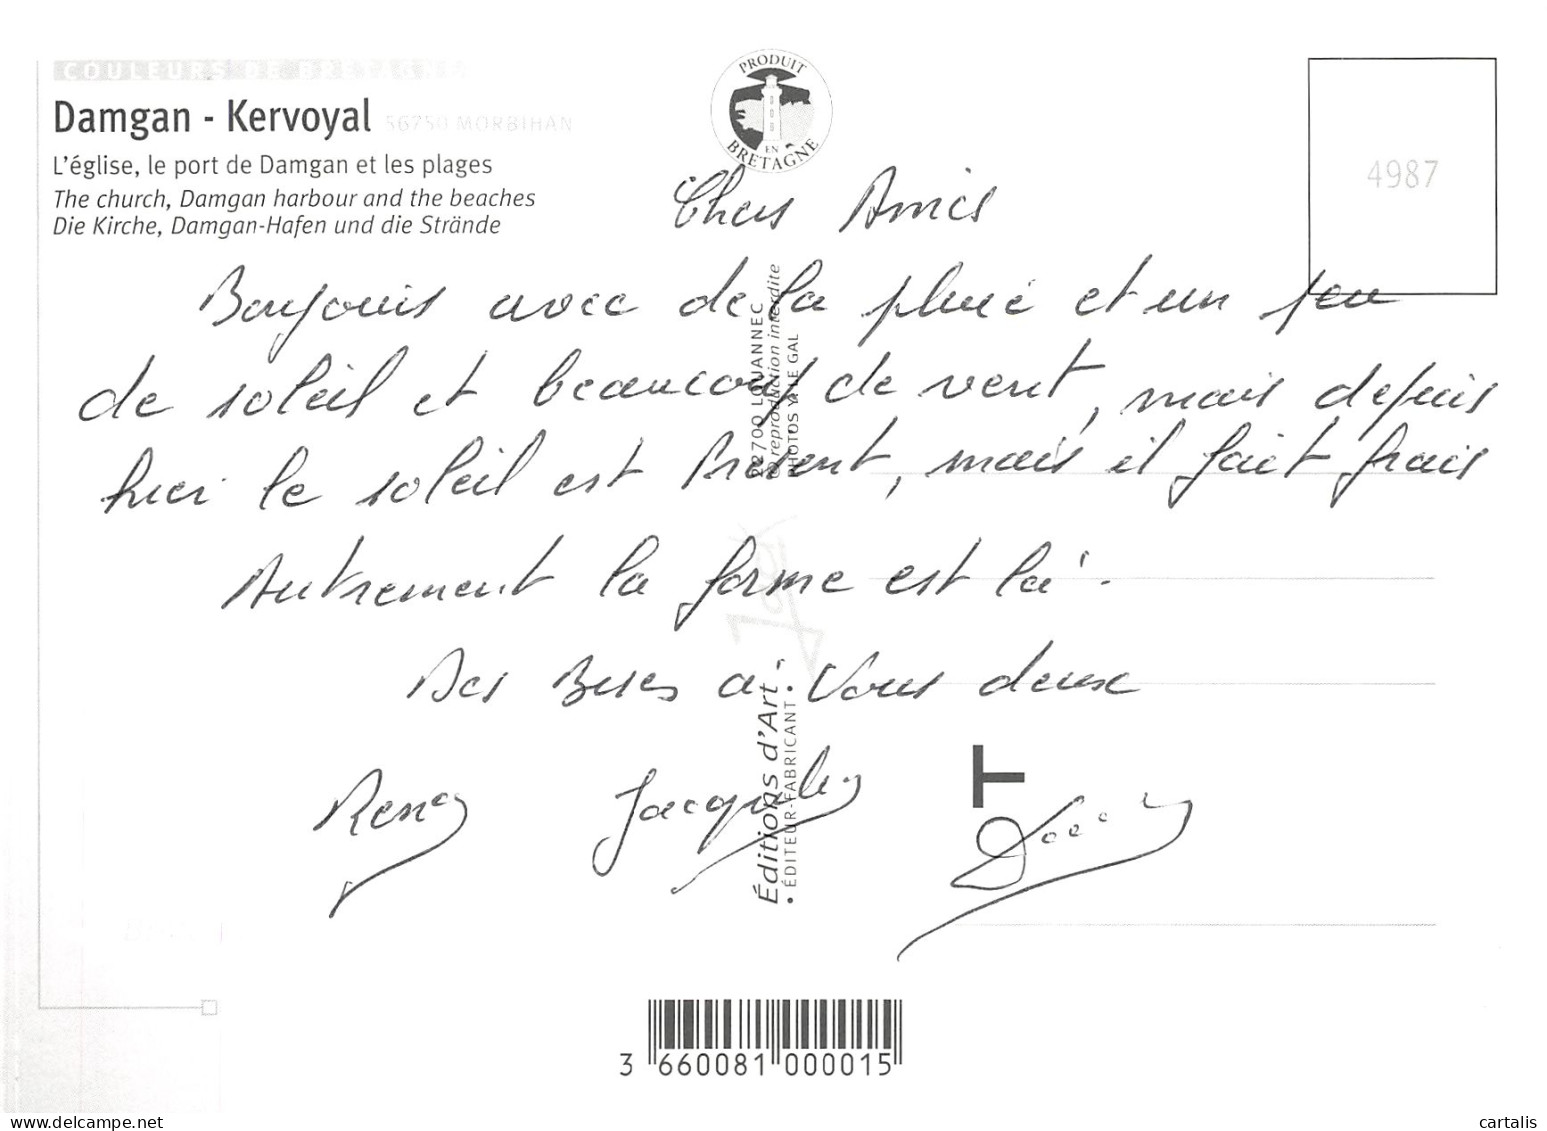 COULEURS DE BRETAGNE
Damgan - Kervoyal 56750 MORBIHAN
L'église, le port de Damgan et les plages
The church, Damgan harbour and the beaches
Die Kirche, Damgan-Hafen und die Strände
PRODUIT
EN
BRETAGNE
4987
Chers Amis
Bonjours avec de la pluie et un peu
de soleil et beaucoup de vent, mais depuis
hier le soleil est présent, mais il fait frais
Autrement la forme est là.
Des Bises à Vous deux
René Jacqueline
22700 LOUANNEC
© reproduction interdite
PHOTOS Y. LE GAL
Jos
Éditions d'Art
• ÉDITEUR-FABRICANT •
3 660081 000015
delcampe.net
cartalis